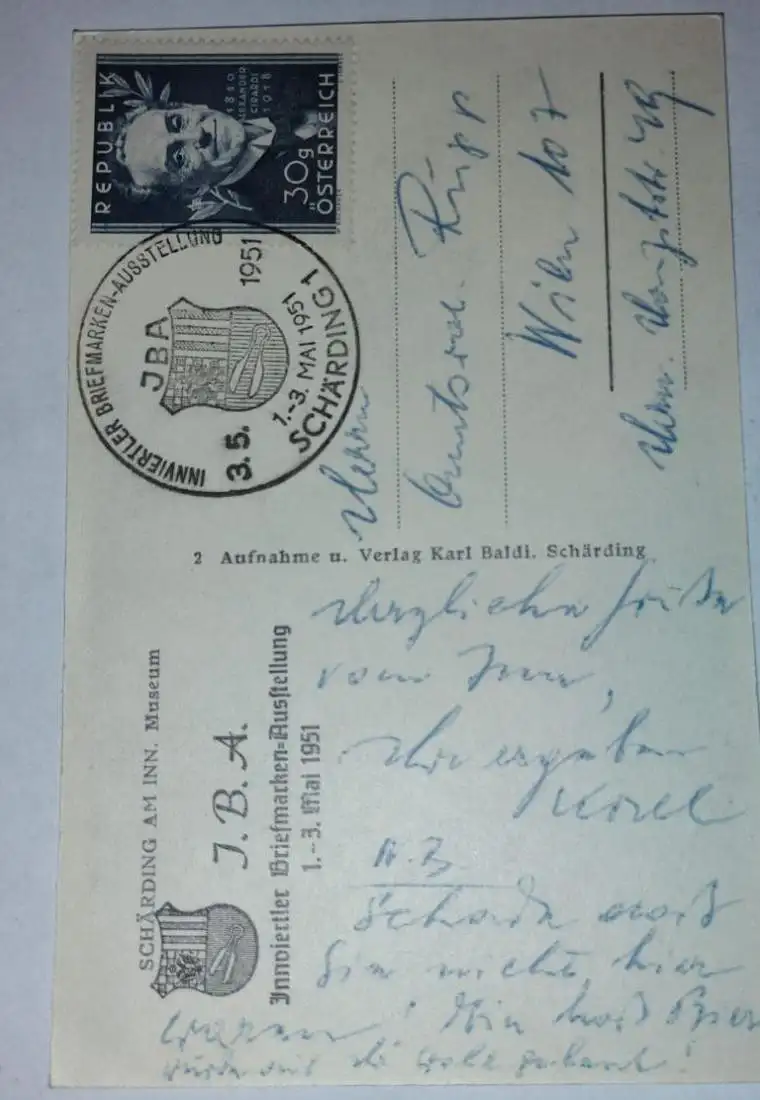 REPUBLIK
ÖSTERREICH
30g
1850
ALEXANDER
GIRARDI
1918
INNVIERTLER BRIEFMARKEN-AUSSTELLUNG
JBA
3.5. 1951
1.-3. MAI 1951
SCHÄRDING 1
Herrn
Rupp
Wien 107
2 Aufnahme u. Verlag Karl Baldi. Schärding
SCHÄRDING AM INN. Museum
J. B. A.
Innviertler Briefmarken=Ausstellung
1.-3. Mai 1951
Herzliche Grüße
vom Inn,
Ihr ergebener
N.B.
Schade daß
Sie nicht hier
waren!